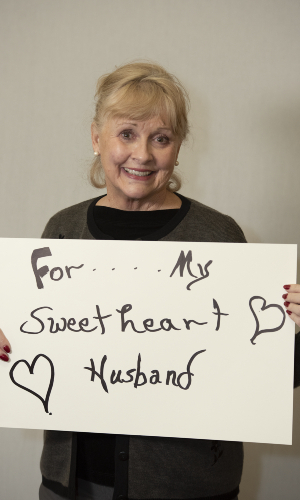 For.....My
Sweetheart
Husband